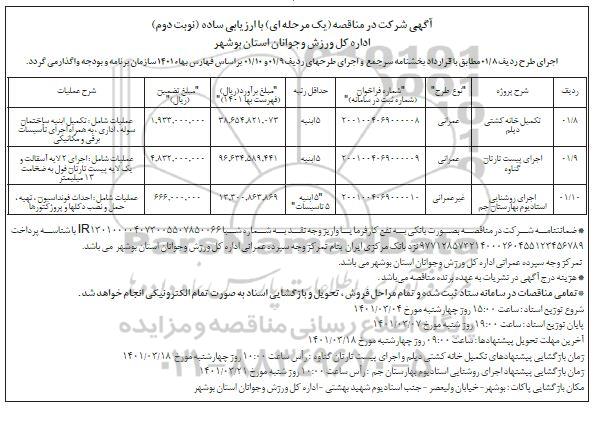 آگهی شرکت در مناقصه (یک مرحله ای) با ارزیابی ساده (نوبت دوم)
اداره کل ورزش وجوانان استان بوشهر
اجرای طرح ردیف ۰۱/۸ مطابق با قرارداد بخشنامه سرجمع و اجرای طرحهای ردیف ۰۱/۹ و ۰۱/۱۰ بر اساس فهارس بهاء ۱۴۰۱ سازمان برنامه و بودجه واگذار می گردد.
ردیف شرح پروژه "نوع طرح" "شماره فراخوان (شماره ثبت در سامانه)" حداقل رتبه "مبلغ برآورد(ریال) (فهرست بها ۱۴۰۱)" "مبلغ تضمین (ریال)" شرح عملیات
۰۱/۸ تکمیل خانه کشتی دیلم عمرانی ۲۰۰۱۰۰۴۰۶۹۰۰۰۰۰۸ ۵ ابنیه ۳۸,۶۵۴,۸۲۱,۰۷۳ ۱,۹۳۳,۰۰۰,۰۰۰ عملیات شامل : تکمیل ابنیه ساختمان سوله ، اداری ، به همراه اجرای تأسیسات برقی و مکانیکی
۰۱/۹ اجرای پیست تارتان گناوه عمرانی ۲۰۰۱۰۰۴۰۶۹۰۰۰۰۰۹ ۵ ابنیه ۹۶,۶۳۴,۵۸۹,۴۴۱ ۴,۸۳۲,۰۰۰,۰۰۰ عملیات شامل : اجرای ۲ لایه آسفالت و یک لایه پیست تارتان فول به ضخامت ۱۳ میلیمتر
۰۱/۱۰ اجرای روشنایی استادیوم بهارستان جم غیرعمرانی ۲۰۰۱۰۰۴۰۶۹۰۰۰۰۱۰ "۵ ابنیه ۵ تاسیسات" ۱۳,۳۰۰,۸۶۳,۸۶۹ ۶۶۶,۰۰۰,۰۰۰ عملیات شامل : احداث فونداسیون ، تهیه ، حمل و نصب دکلها و پروژکتورها
* ضمانتنامه شرکت در مناقصه بصورت بانکی به نفع کارفرما یا واریز وجه نقد به شماره شبا IR۱۲۰۱۰۰۰۰۴۰۷۲۰۰۵۵۰۷۸۵۰۰۶۶۱ با شناسه پرداخت
۹۷۷۱۲۸۵۷۲۲۱۴۰۰۰۲۶۰۴۵۵۱۲۳۴۵۶۷۸۹ نزد بانک مرکزی ایران بنام تمرکز وجوه سپرده عمرانی اداره کل ورزش وجوانان استان بوشهر می باشد.
تمرکز وجوه سپرده عمرانی اداره کل ورزش وجوانان استان بوشهر می باشد.
* هزینه درج آگهی در نشریات به عهده برنده مناقصه می‌باشد.
* تمامی مناقصات در سامانه ستاد ثبت شده و تمام مراحل فروش ، تحویل و بازگشایی اسناد به صورت تمام الکترونیکی انجام خواهد شد.
شروع توزیع اسناد : ساعت ۱۵:۰۰ روز چهارشنبه مورخ ۱۴۰۱/۰۳/۰۴
پایان توزیع اسناد : ساعت ۱۹:۰۰ روز شنبه مورخ ۱۴۰۱/۰۳/۰۷
آخرین مهلت تحویل پیشنهادها : ساعت ۰۹:۰۰ روز چهارشنبه مورخ ۱۴۰۱/۰۳/۱۸
زمان بازگشایی پیشنهادهای تکمیل خانه کشتی دیلم و اجرای پیست تارتان گناوه : رأس ساعت ۱۰:۰۰ روز چهارشنبه مورخ ۱۴۰۱/۰۳/۱۸
زمان بازگشایی پیشنهاد اجرای روشنایی استادیوم بهارستان جم : رأس ساعت ۱۰:۰۰ روز شنبه مورخ ۱۴۰۱/۰۳/۲۱
مکان بازگشایی پاکات : بوشهر - خیابان ولیعصر - جنب استادیوم شهید بهشتی - اداره کل ورزش وجوانان استان بوشهر